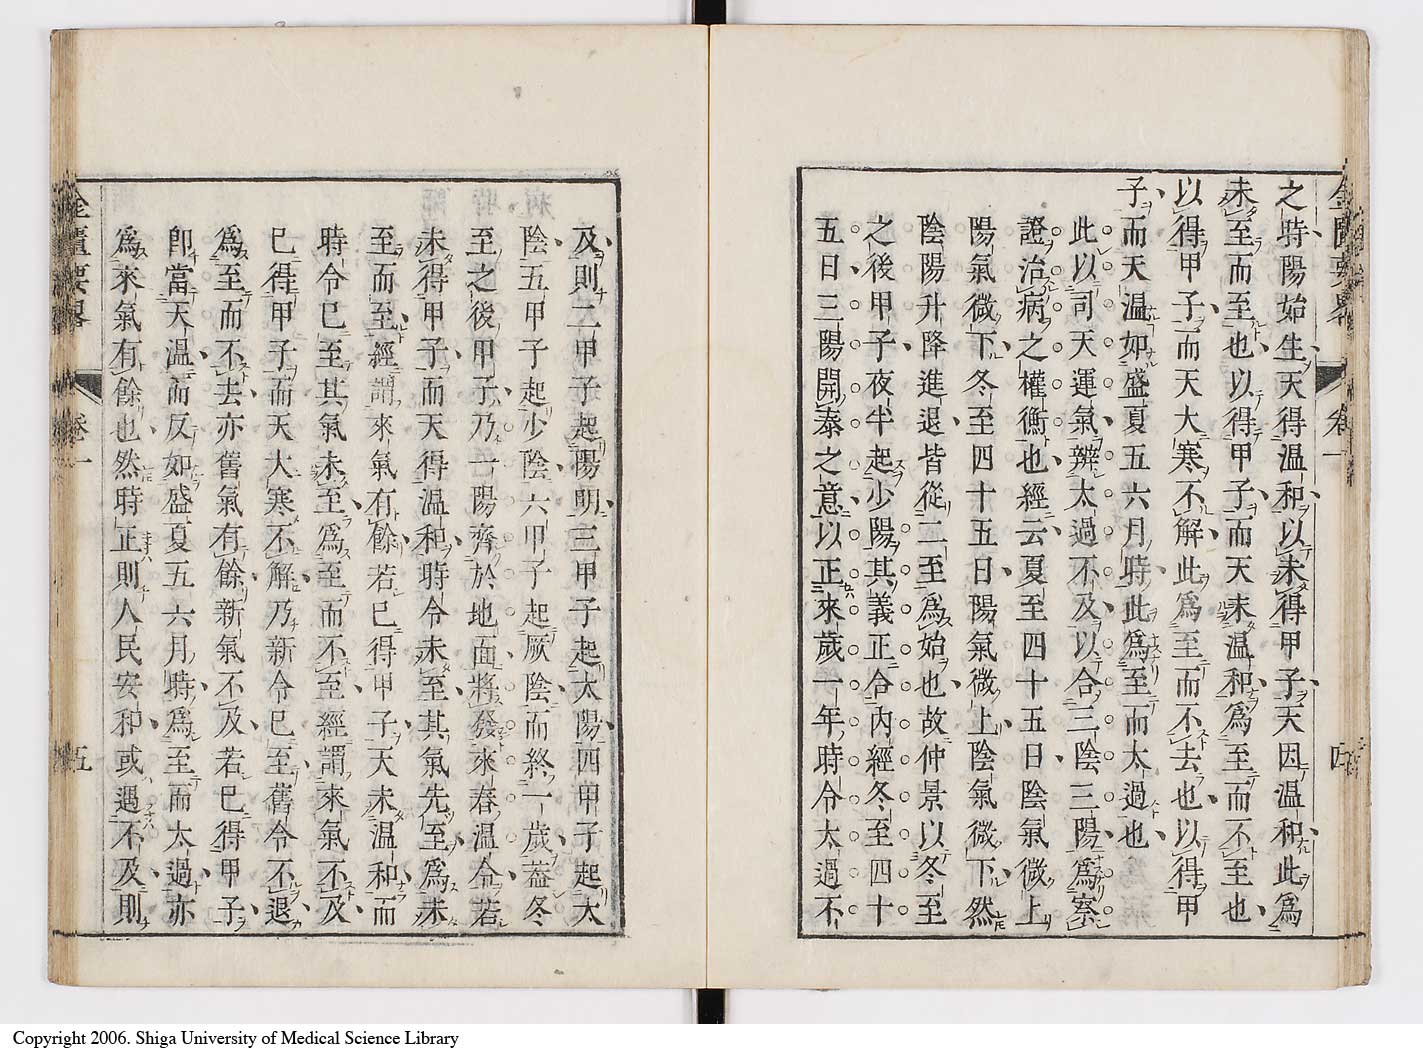 之時陽始生天得温和以未得甲子天因温和此爲
未至而至也以得甲子而天未温和爲至而不至也
以得甲子而天大寒不解此爲至而不去也以得甲
子而天温如盛夏五六月時此爲至而太過也
此以司天運氣辨太過不及以合三陰三陽爲察
證治病之權衡也經云夏至四十五日陰氣微上
陽氣微下冬至四十五日陽氣微上陰氣微下然
陰陽升降進退皆從二至爲始也故仲景以冬至
之後甲子夜半起少陽其義正合内經冬至四十
五日三陽開泰之意以正來歲一年時令太過不
金匱要畧
卷一
四
及則二甲子起陽明三甲子起太陽四甲子起太
陰五甲子起少陰六甲子起厥陰而終一歲葢冬
至之後甲子乃一陽齊於地面將發來春温令若
未得甲子而天得温和時令未至其氣先至爲未
至而至經謂來氣有餘若已得甲子天未温和而
時令已至其氣未至爲至而不至經謂來氣不及
已得甲子而天大寒不解乃新令已至舊令不退
爲至而不去亦舊氣有餘新氣不及若已得甲子
卽當天温而反如盛夏五六月時爲至而太過亦
爲來氣有餘也然時正則人民安和或遇不及則
金匱要畧
卷一
五
Copyright 2006. Shiga University of Medical Science Library